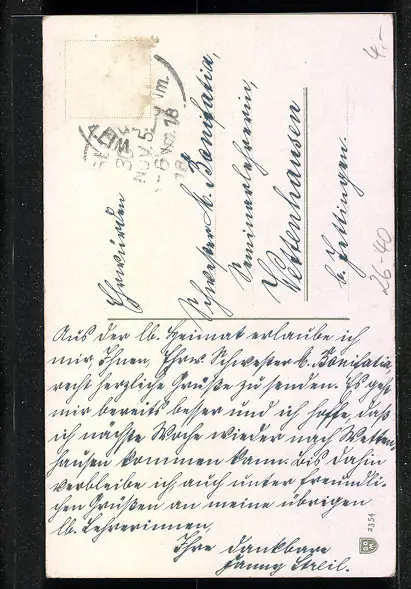 Ehrwürden
Schwester M. Bonifatia,
Seminarlehrerin,
Wettenhausen
b. Jettingen.
Aus der lb. Heimat erlaube ich
mir, Ihnen, Ehrw. Schwester M. Bonifatia,
recht herzliche Grüße zu senden. Es geht
mir bereits besser und ich hoffe, daß
ich nächste Woche wieder nach Wetten-
hausen kommen kann. Bis dahin
verbleibe ich auch unter freundli-
chen Grüßen an meine übrigen
lb. Lehrerinnen,
Ihre dankbare
Fanny
4.-
26-40
2354
NOV. 5
18